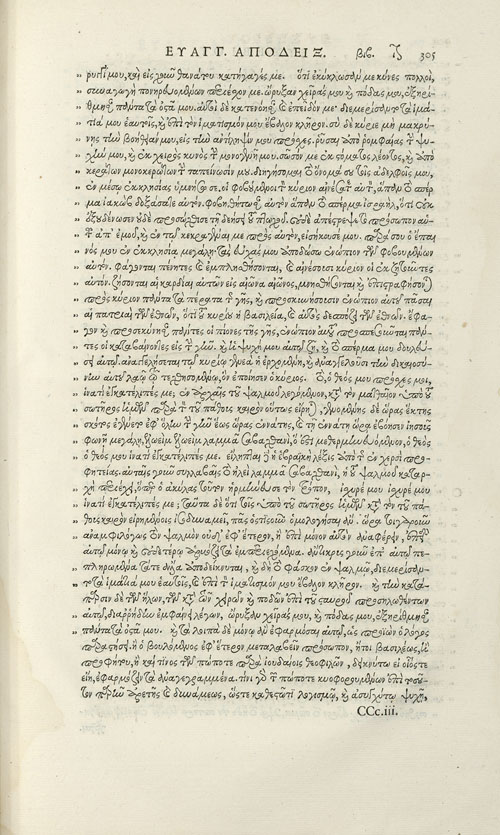 ΕΥΑΓΓ. ΑΠΟΔΕΙΞ. βιβ. ιζ 305
ρυγγί μου, καὶ εἰς χοῦν θανάτου κατήγαγές με. ὅτι ἐκύκλωσάν με κύνες πολλοὶ,
συναγωγὴ πονηρδομένων περιέσχον με. ὤρυξαν χεῖράς μου καὶ πόδας μου, ἐξηρίθ
θμησαν πάντα τὰ ὀστᾶ μου. αὐτοὶ δὲ κατενόησαν καὶ ἐπεῖδόν με. διεμερίσαντο τὰ ἱμά
τιά μου ἑαυτοῖς, καὶ ἐπὶ τὸν ἱματισμόν μου ἔβαλον κλῆρον. σὺ δὲ κύριε μὴ μακρύ
νῃς τὴν βοήθειάν μου, εἰς τὴν ἀντίληψίν μου πρόσχες. ῥῦσαι ἀπὸ ῥομφαίας τὴν ψυ
χήν μου, καὶ ἐκ χειρὸς κυνὸς τὴν μονογενῆ μου. σῶσόν με ἐκ στόματος λέοντος, καὶ ἀπὸ
κεράτων μονοκερώτων τὴν ταπείνωσίν μου. διηγήσομαι τὸ ὄνομά σου τοῖς ἀδελφοῖς μου,
ἐν μέσῳ ἐκκλησίας ὑμνήσω σε. οἱ φοβούμενοι τὸν κύριον αἰνέσατε αὐτὸν, ἅπαν τὸ σπέρ
μα ἰακὼβ δοξάσατε αὐτόν. φοβηθήτωσαν αὐτὸν ἅπαν τὸ σπέρμα ἰσραὴλ, ὅτι οὐκ
ἐξουδένωσεν οὐδὲ προσώχθισε τῇ δεήσει τοῦ πτωχοῦ. οὐδὲ ἀπέστρεψε τὸ πρόσωπον αὐ
τοῦ ἀπ' ἐμοῦ, καὶ ἐν τῷ κεκραγέναι με πρὸς αὐτὸν, εἰσήκουσέ μου. παρὰ σοῦ ὁ ἔπαι
νός μου ἐν ἐκκλησίᾳ μεγάλῃ. τὰς εὐχάς μου ἀποδώσω ἐνώπιον τῶν φοβουμένων
αὐτόν. φάγονται πένητες καὶ ἐμπλησθήσονται, καὶ αἰνέσουσι κύριον οἱ ἐκζητοῦντες
αὐτόν. ζήσονται αἱ καρδίαι αὐτῶν εἰς αἰῶνα αἰῶνος, μνησθήσονται καὶ ἐπιστραφήσονται
πρὸς κύριον πάντα τὰ πέρατα τῆς γῆς, καὶ προσκυνήσουσιν ἐνώπιον αὐτοῦ πᾶσαι
αἱ πατριαὶ τῶν ἐθνῶν, ὅτι τοῦ κυρίου ἡ βασιλεία, καὶ αὐτὸς δεσπόζει τῶν ἐθνῶν. ἔφα
γον καὶ προσεκύνησαν πάντες οἱ πίονες τῆς γῆς, ἐνώπιον αὐτοῦ προπεσοῦνται πάν
τες οἱ καταβαίνοντες εἰς τὴν γῆν. καὶ ἡ ψυχή μου αὐτῷ ζῇ, καὶ τὸ σπέρμα μου δουλεύ
σει αὐτῷ. ἀναγγελήσεται τῷ κυρίῳ γενεὰ ἡ ἐρχομένη, καὶ ἀναγγελοῦσι τὴν δικαιοσύ
νην αὐτοῦ λαῷ τῷ τεχθησομένῳ, ὃν ἐποίησεν ὁ κύριος. Τὸ, ὁ θεός μου πρόσχες μοι,
ἱνατί ἐγκατέλιπές με; ἐν ἀρχαῖς τοῦ ψαλμοῦ λεγόμενον, κατὰ τὸν ματθαῖον ὑπὸ τοῦ
σωτῆρος ἡμῶν παρὰ τὸν τοῦ πάθους καιρὸν οὕτως εἴρηται, γενομένης δὲ ὥρας ἕκτης
σκότος ἐγένετο ἐφ' ὅλην τὴν γῆν ἕως ὥρας ἐννάτης, καὶ τῇ ἐννάτῃ ὥρᾳ ἐβόησεν ἰησοῦς
φωνῇ μεγάλῃ, ἐλωεὶμ ἐλωεὶμ λαμμᾶ σαβαχθανὶ, ὅ ἐστι μεθερμηνευόμενον, ὁ θεός
ὁ θεός μου ἱνατί ἐγκατέλιπές με. εἴληπται γὰρ ἡ ἑβραϊκὴ λέξις ἀπὸ τῆς ἐν χερσὶ προ
φητείας. αὐταῖς γοῦν συλλαβαῖς τὸ ἠλεὶ λαμμᾶ σαβαχθανὶ, ἡ τοῦ ψαλμοῦ καταρ
χὴ περιέχει, ὅπερ ὁ ἀκύλας τοῦτον ἡρμήνευσε τὸν τρόπον, ἰσχυρέ μου ἰσχυρέ μου
ἱνατί ἐγκατέλιπές με; ταῦτα δὲ ὅτι τοῖς ὑπὸ τοῦ σωτῆρος ἡμῶν κατὰ τὸν τοῦ πά
θους καιρὸν εἰρημένοις ἰσοδυναμεῖ, πᾶς ὁστισοῦν ὁμολογήσαι ἄν. ὥρα τοιγαροῦν
ἀναμφιλόγως τὸν ψαλμὸν οὐκ ἐφ' ἕτερον, ἢ ἐπὶ μόνον αὐτὸν ἀναφέρειν, ἐπ'
αὐτῷ μόνῳ καὶ οὐδετέρῳ ἁρμόζοντα τὰ ἐμπεριεχόμενα. εὐθικρὸς γοῦν ἐπ' αὐτῷ πε
πληρωμένα τά τε ἄλλα ἀποδείκνυται, καὶ δὴ τὸ φάσκον ἐν ψαλμῷ, διεμερίσαν
το τὰ ἱμάτιά μου ἑαυτοῖς, καὶ ἐπὶ τὸν ἱματισμόν μου ἔβαλον κλῆρον. καὶ τὴν κατά
παρσιν δὲ τῶν ἥλων, τῶν κατὰ τῶν χειρῶν καὶ ποδῶν ἐπὶ τοῦ σταυροῦ προσηλωθέντων
αὐτῷ, διαρρήδην ἐμφαίνει λέγων, ὤρυξαν χεῖράς μου, καὶ πόδας μου, ἐξηρίθμησαν
πάντα τὰ ὀστᾶ μου. καὶ τὰ λοιπὰ δὲ μόνῳ ἂν ἐφαρμόσαι αὐτῷ, ὡς προϊὼν ὁ λόγος
παραστήσει. ἢ ὁ βουλόμενος ἐφ' ἕτερον μεταλαβεῖν πρόσωπον, ἤτοι βασιλέως, ἢ
προφήτου, ἢ καί τινος τῶν πώποτε παρὰ ἰουδαίοις θεοφιλῶν, δεικνύτω εἰ οἷός τε
εἴη, ἐφαρμόζειν τὰ ἀναγεγραμμένα. τίνι γὰρ τῶν πώποτε κυοφορουμένων ἐπὶ τοσοῦ
τον παρῆν ἀρετῆς καὶ δυνάμεως, ὥστε καθεστῶτι λογισμῷ, καὶ ἀσυγχύτῳ ψυχῇ,
CCc.iii.